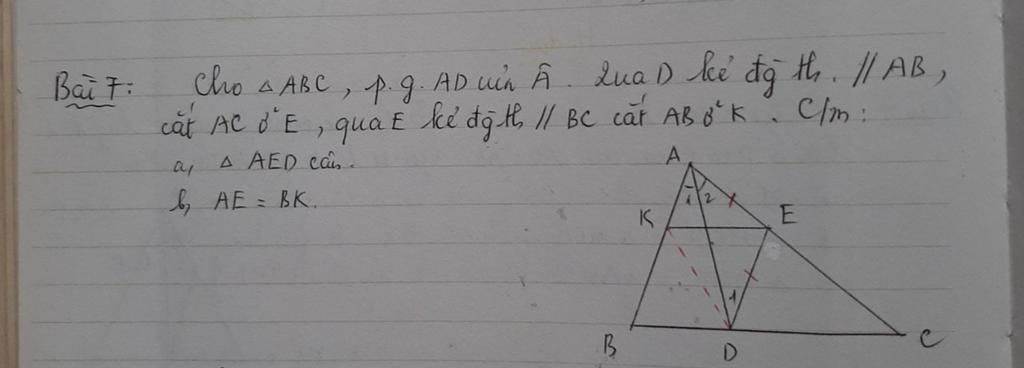 Bài 7: Cho △ABC, p.g. AD của Â. Qua D kẻ đg th. // AB,
cắt AC ở E, qua E kẻ đg th // BC cắt AB ở K. C/m:
a, △ AED cân.
b, AE = BK.
A
1 2
K E
1
B D C